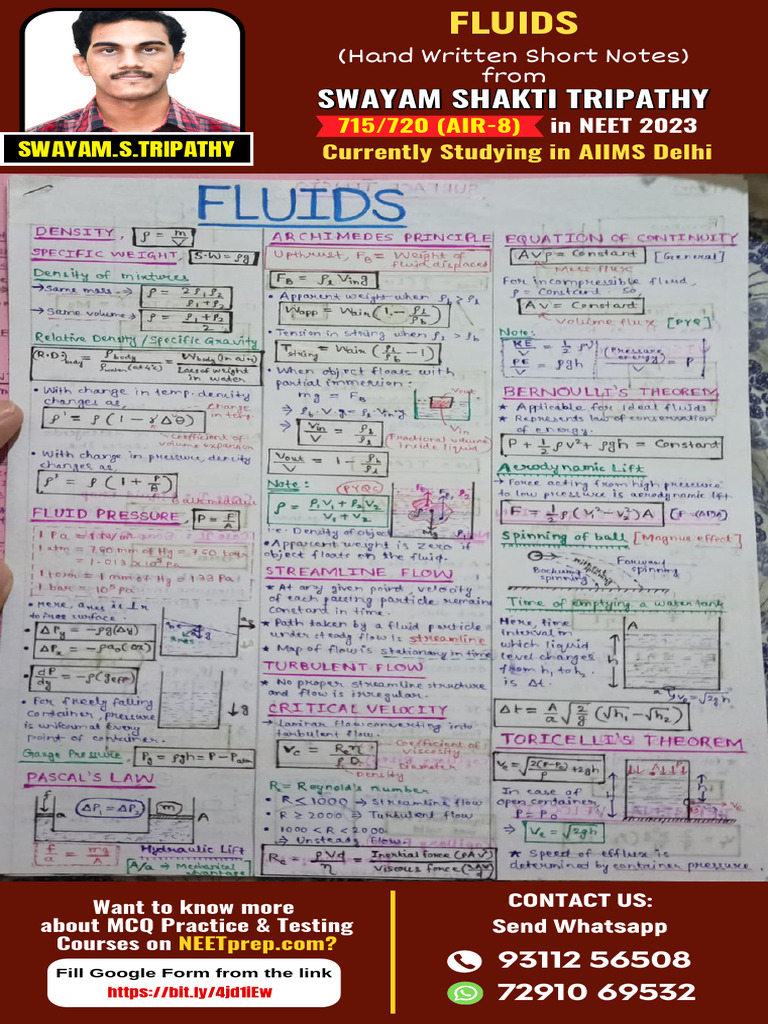 FLUIDS
(Hand Written Short Notes)
from
SWAYAM SHAKTI TRIPATHY
715/720 (AIR-8) in NEET 2023
Currently Studying in AIIMS Delhi
SWAYAM.S.TRIPATHY
FLUIDS
DENSITY, ρ = m/V
SPECIFIC WEIGHT, S.W = ρg
Density of mixtures
→ Same mass → ρ = 2ρ₁ρ₂/(ρ₁+ρ₂)
→ Same volume → ρ = (ρ₁+ρ₂)/2
Relative Density / Specific Gravity
(R.D.)body = ρbody/ρwater(at 4°C) = Wbody (in air)/Loss of weight in water
• With change in temp. density
changes as,
ρ' = ρ(1 - γΔθ)
change in temp.
coefficient of
volume expansion
• With change in pressure, density
changes as,
ρ' = ρ(1 + P/B)
FLUID PRESSURE, P = F/A
1 atm = 760 mm of Hg
= 1.013 x 10⁵ Pa
1 torr = 1 mm of Hg = 133 Pa
1 bar = 10⁵ Pa
• Here, area is ⊥r
to free surface:
• ΔPy = -ρg(Δy)
• ΔPx = -ρa₀(Δx)
area
• dP/dy = -ρ(geff)
• For freely falling
container, pressure
is uniform at every
point of container.
↓g
Gauge Pressure, Pg = ρgh = P - Patm
PASCAL'S LAW
f
a
ΔP₁ = ΔP₂
m
A
f/a = mg/A
Hydraulic Lift
A/a → Mechanical
advantage
ARCHIMEDES PRINCIPLE
Upthrust, FB = Weight of
fluid displaced
FB = ρl Vin g
• Apparent weight when ρb ≥ ρl
Wapp = Wair(1 - ρl/ρb)
• Tension in string when ρl > ρb
Tstring = Wair(ρl/ρb - 1)
• When object floats with
partial immersion:
mg = FB
⇒ ρb.V.g = ρl.Vin.g
⇒ Vin/V = ρb/ρl
Fractional volume
inside liquid
Vout
Vin
Vout/V = 1 - ρb/ρl
Note: (PYQs)
ρ = (ρ₁V₁ + ρ₂V₂)/(V₁ + V₂)
i.e. Density of object
Mg
• Apparent weight is zero if
object floats on the fluid.
STREAMLINE FLOW
★ At any given point, velocity
of each passing particle remains
constant in time.
★ Path taken by a fluid particle
under steady flow is streamline
★ Map of flow is stationary in time
TURBULENT FLOW
★ No proper streamline structure
and flow is irregular.
CRITICAL VELOCITY
→ Laminar flow converting into
turbulent flow.
vc = Reη/ρD
Coefficient of
viscosity
Diameter
Density
R = Reynold's number
• R < 1000 → Streamline flow
• R ≥ 2000 → Turbulent flow
• 1000 < R < 2000
→ Unsteady flow
Re = ρVd/η = Inertial force (ρAV²)/Viscous force (ηAV/d)
EQUATION OF CONTINUITY
AVρ = Constant [General]
Mass flux
For incompressible fluid,
ρ = Constant. So,
AV = Constant
Volume flux [PYQ]
Note:
KE/V = 1/2 ρv²
PE/V = ρgh
(Pressure energy)/V = P
BERNOULLI'S THEOREM
★ Applicable for ideal fluids
★ Represents law of conservation
of energy.
P + 1/2 ρv² + ρgh = Constant
Aerodynamic Lift
→ Force acting from high pressure
to low pressure is aerodynamic lift
F = 1/2 ρ(V₁² - V₂²)A
Spinning of ball [Magnus effect]
Backward
spinning
Forward
spinning
Time of emptying a water tank
Here, time
interval in
which liquid
level changes
from h₁ to h₂
is Δt.
A
h
a
ve = √2gh
Δt = A/a √(2/g) (√h₁ - √h₂)
TORICELLI'S THEOREM
ve = √(2(P-P₀)/ρ + 2gh)
In case of
open container,
P = P₀
⇒ Ve = √2gh
h
★ Speed of efflux is
determined by container pressure.
Want to know more
about MCQ Practice & Testing
Courses on NEETprep.com?
Fill Google Form from the link
https://bit.ly/4jd1iEw
CONTACT US:
Send Whatsapp
93112 56508
72910 69532